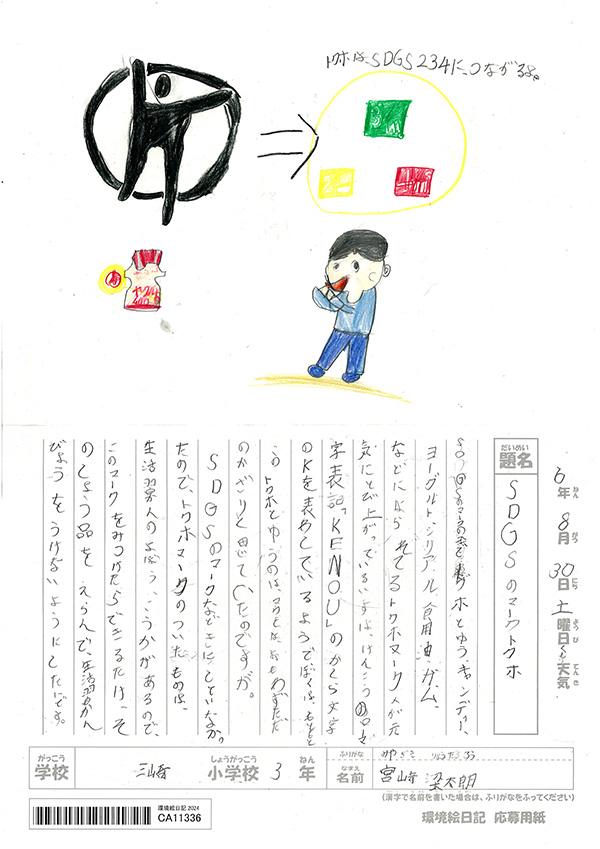 トクホは、SDGS234に、つながるよ。
ヤクルト
400
6年 8月 30日 土曜日 天気
ねん がつ にち ようび てんき
だいめい
題名
SDGSのマークトクホ
トクホとゆうキャンディー、
ヨーグルト、シリアル、食用油、ガム、
などにはられてるトクホマーク人が元
気にとび上がっているいずは、けんこうのローマ
字表記「KENOU」のかしら文字
のKを表わしているようでぼくは、もともと
このトクホとゆうのは、マークとは、おもわずただ
のかざりと思っていたのですが。
SDGSのマークなどきにしていなかっ
たので、トクホマークのついたものは、
生活習人のよぼう、こうかがあるので、
このマークをみつけたらできるだけ、そ
のしょう品を えらんで、生活習かん
びょうをうけないようにしたいです。
がっこう しょうがっこう ねん
学校 三崎 小学校 3年
ふりがな みやざき りょうたろう
なまえ
名前 宮崎 梁太朗
(漢字で名前を書いた場合は、ふりがなをふってください)
環境絵日記 2024
CA11336
環境絵日記 応募用紙